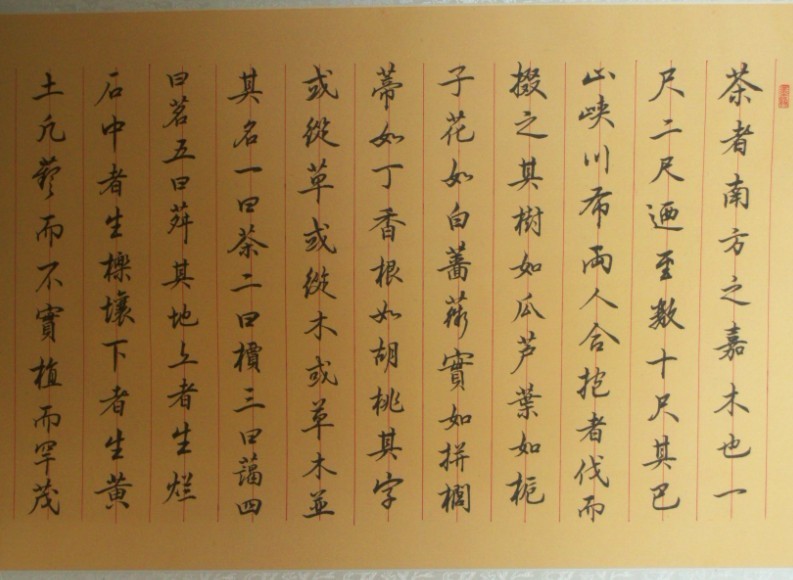 茶者南方之嘉木也一
尺二尺迺至數十尺其巴
山峽川布兩人合抱者伐而
掇之其樹如瓜芦葉如栀
子花如白薔薇實如拼櫚
蒂如丁香根如胡桃其字
或從草或從木或草木並
其名一曰茶二曰檟三曰蔎四
曰茗五曰荈其地上者生烂
石中者生櫟壤下者生黄
土凡藝而不實植而罕茂